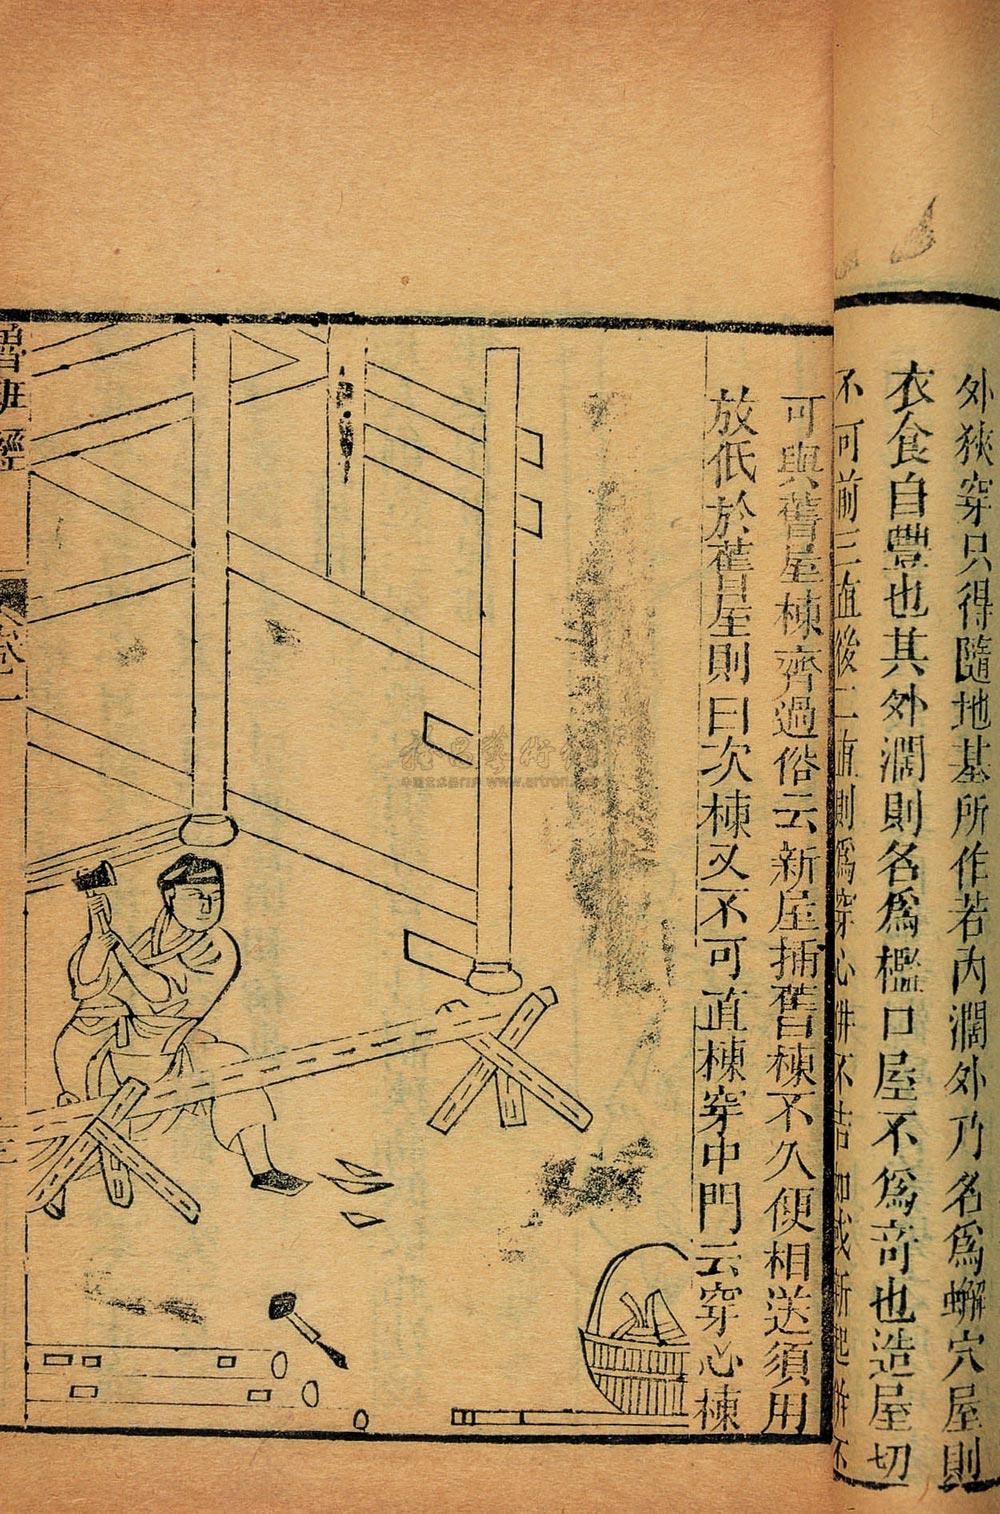 外狹穿只得隨地基所作若内濶外乃名爲蠏穴屋則
衣食自豐也其外濶則名爲檻口屋不爲奇也造屋切
不可前三直後二直則爲穿心栟不吉如或新起栟不
可與舊屋棟齊過俗云新屋插舊棟不久便相送須用
放低於舊屋則曰次棟又不可直棟穿中門云穿心棟
魯班經
卷一